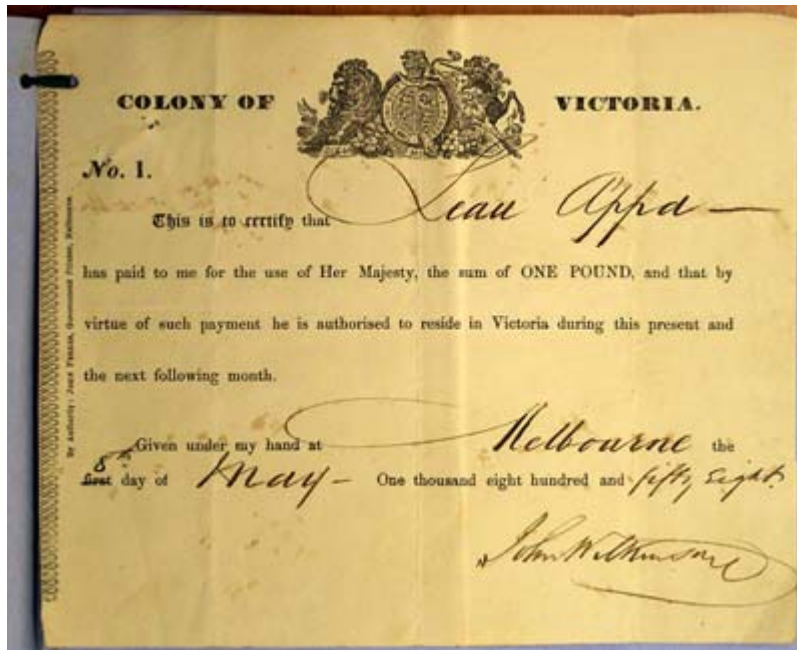 COLONY OF VICTORIA.
No. 1.
This is to certify that Leau Appa
has paid to me for the use of Her Majesty, the sum of ONE POUND, and that by
virtue of such payment he is authorised to reside in Victoria during this present and
the next following month.
Given under my hand at Melbourne the
8th day of May — One thousand eight hundred and fifty Eight.
John Wilkinson
By Authority: JOHN FERRES, Government Printer, Melbourne.